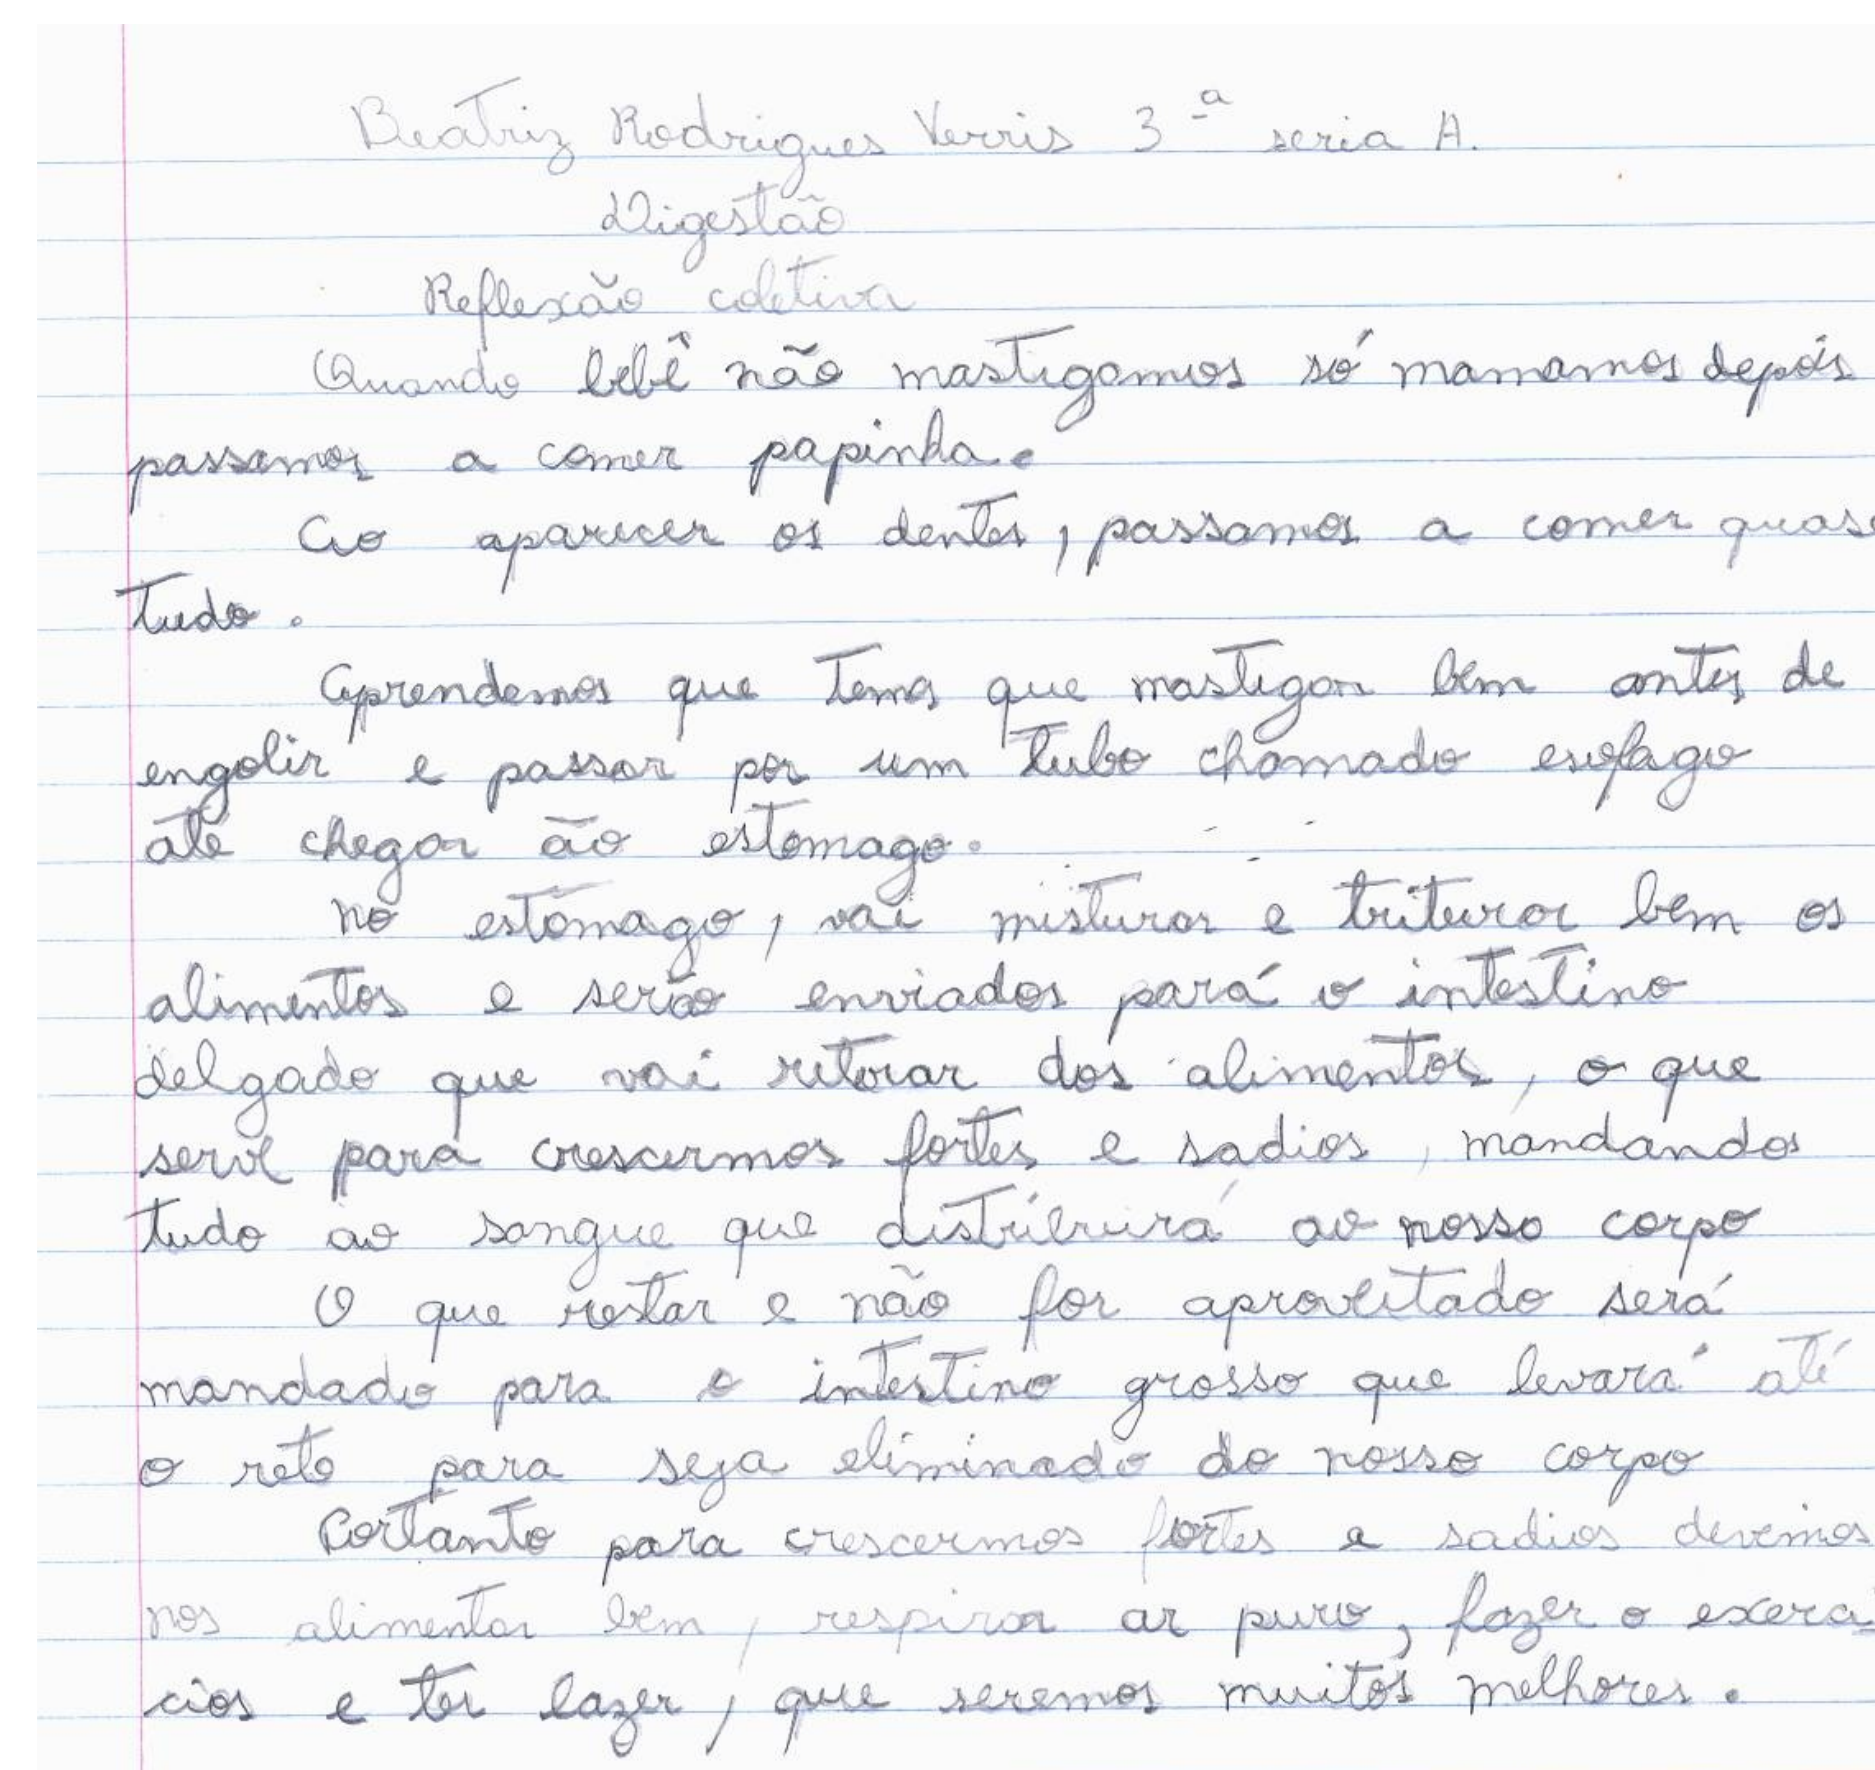 Beatriz Rodrigues Verris 3ª seria A.
Digestão
Reflexão coletiva
Quando bebê não mastigamos só mamamos depóis
passamos a comer papinha.
Ao aparecer os dentes, passamos a comer quase
tudo.
Aprendemos que temos que mastigar bem antes de
engolir e passar por um tubo chamado esofago
até chegar ão estomago.
No estômago, vai misturar e triturar bem os
alimentos e serão enviados pará o intestino
delgado que vai retirar dos alimentos, o que
serve para crescermos fortes e sadios, mandandos
tudo ao sangue que distribuirá ao nosso corpo
O que restar e não for aproveitado será
mandado para o intestino grosso que levará até
o reto para seja eliminado do nosso corpo
Portanto para crescermos fortes e sadios devemos
nos alimentar bem, respirar ar puro, fazer o exerci-
cios e ter lazer, que seremos muitos melhores.